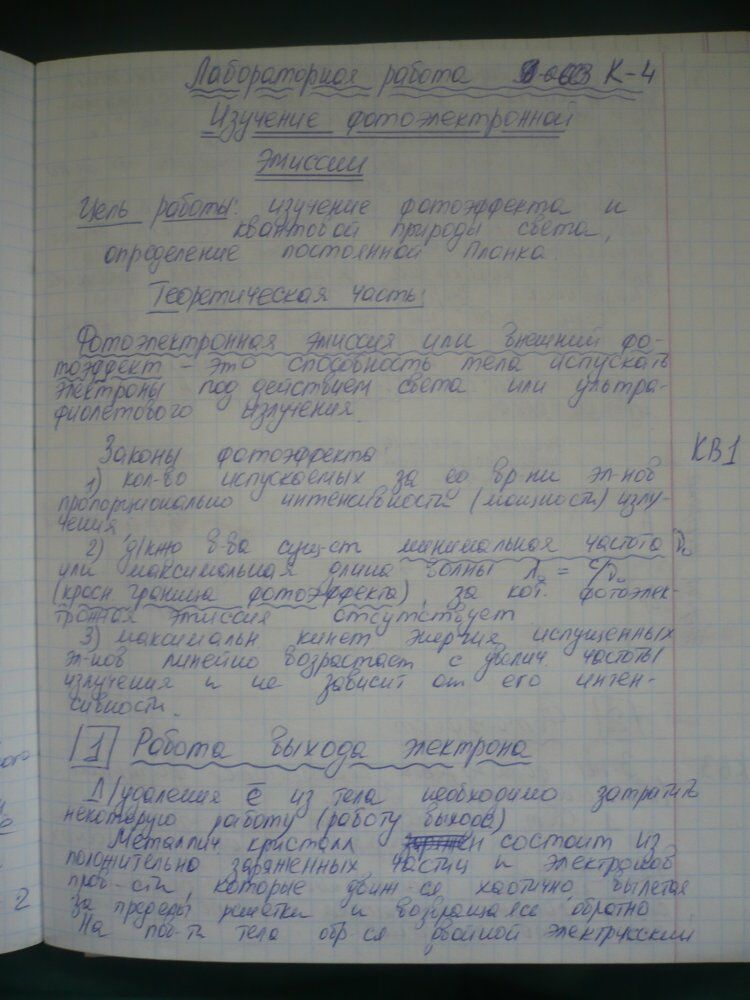 Лабораторная работа К-4
Изучение фотоэлектронной
эмиссии
Цель работы: изучение фотоэффекта и
квантовой природы света,
определение постоянной Планка.
Теоретическая часть:
Фотоэлектронная эмиссия или внешний фо-
тоэффект - это способность тела испускать
электроны под действием света или ультра-
фиолетового излучения.
Законы фотоэффекта:
КВ1
1) кол-во испускаемых за ед вр-ни эл-нов
пропорционально интенсивности (мощности) излу-
чения
2) д/кжо в-ва сущ-ст минимальная частота ν₀
или максимальная длина волны λ₀ = c/ν₀
(красн граница фотоэффекта), за кот. фотоэлек-
тронная эмиссия отсутствует
3) максимальн. кинет энергия испущенных
эл-нов линейно возрастает с увелич. частоты
излучения и не зависит от его интен-
сивности.
1 Работа выхода электрона
Д/удаления e̅ из тела необходимо затратить
некоторую работу (работу выхода)
Металлич. кристалл состоит из
положительно заряженных частиц и электронов
пров-сти, которые движ-ся хаотично, вылетая
за пределы решетки и возвращаясь обратно
На пов-ти тела обр-ся двойной электрический
2